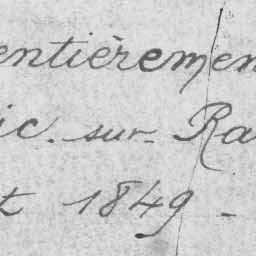 entièremen
ic. sur. Ra
t 1849 -